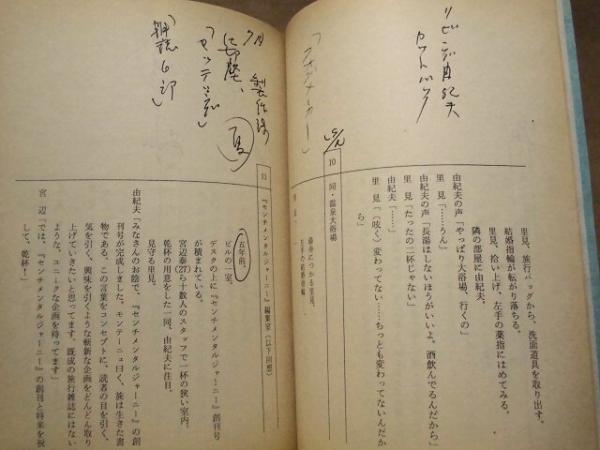 リビング由紀夫
カットバック
里見、旅行バッグから、洗面道具を取り出す。
結婚指輪が転がり落ちる。
里見、拾い上げ、左手の薬指にはめてみる。
隣の部屋に由紀夫。
由紀夫の声「やっぱり大浴場、行くの」
里 見「……うん」
由紀夫の声「長湯はしないほうがいいよ。酒飲んでるんだから」
里 見「たったの二杯じゃない」
由紀夫「……」
里 見「（呟く）変わってない……ちっとも変わってないんだか
ら」
10 同・温泉大浴場
湯舟につかる里見。
左手の結婚指輪
夏
11 『センチメンタルジャーニー』編集室（以下回想）
五年前。
ビルの一室。
デスクの上に『センチメンタルジャーニー』創刊号
が積まれている。
宮辺泰(27)ら十数人のスタッフで一杯の狭い室内。
乾杯の用意をした一同、由紀夫に注目。
見守る里見。
由紀夫「みなさんのお陰で、『センチメンタルジャーニー』の創
刊号が完成しました。モンテーニュ曰く、旅は生きた書
物である。この言葉をコンセプトに、読者の目を引く、
気を引く、興味を引くような斬新な企画をどんどん取り
上げていきたいと思ってます。既成の旅行雑誌にはない
ような、ユニークな企画を待ってます」
宮 辺「では、『センチメンタルジャーニー』の創刊と将来を祝
して、乾杯！」